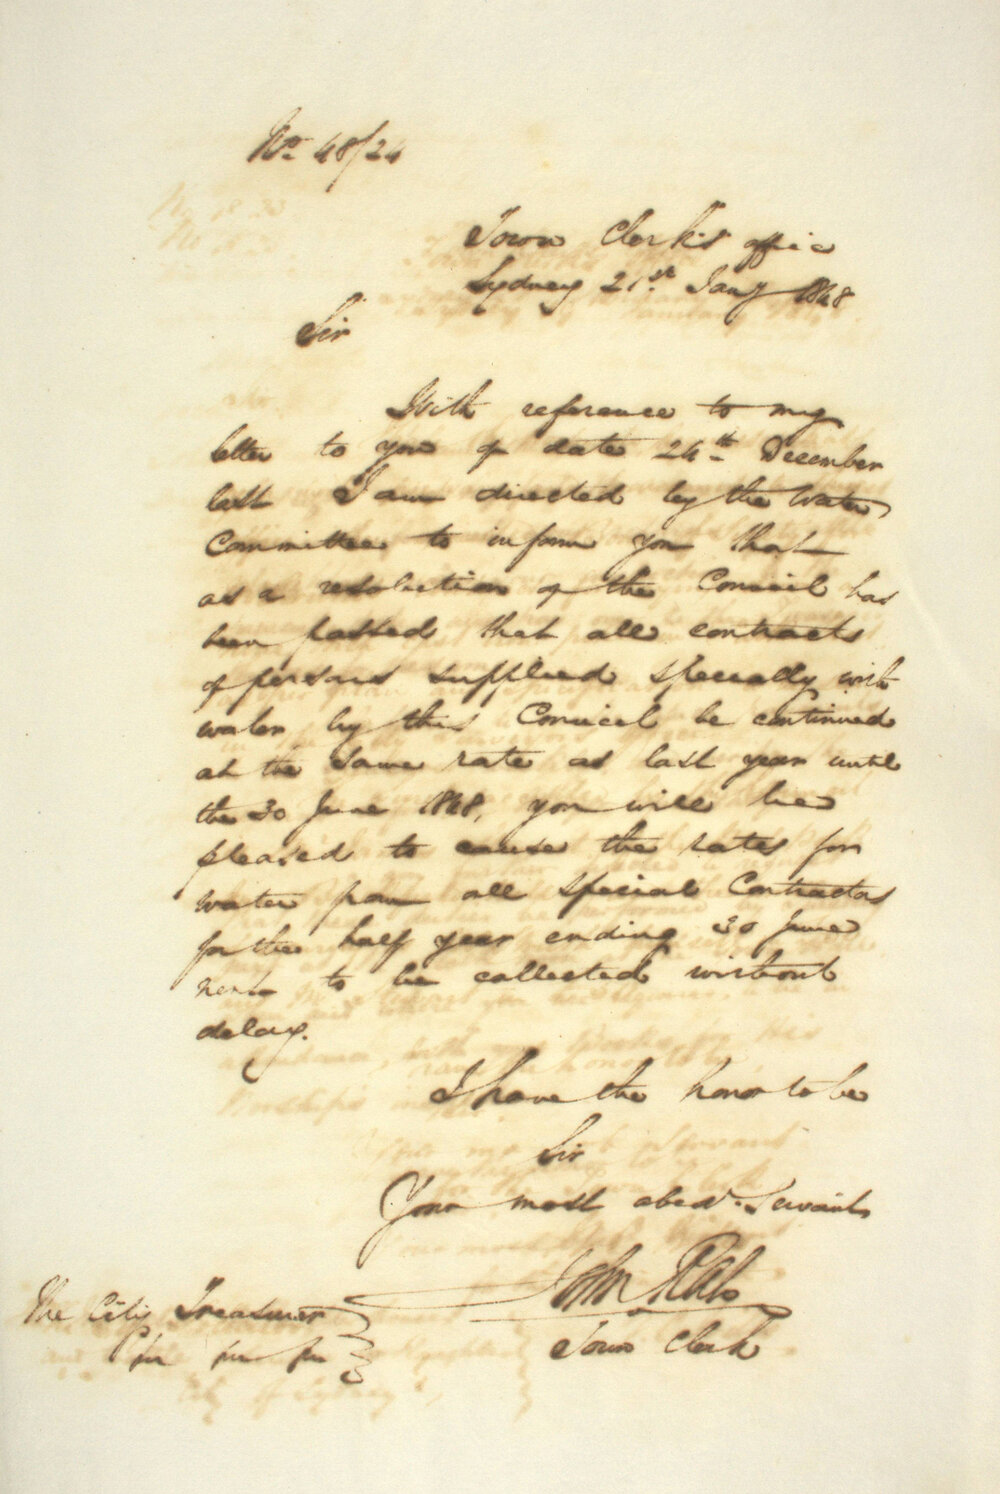 No. 48/24
Town Clerk's office
Sydney 21st. Jany 1848
Sir
With reference to my
letter to you of date 24th December
last I am directed by the Water
Committee to inform you that
as a resolution of the Council has
been passed that all contracts
of persons supplied specially with
water by this Council be continued
at the same rate as last year until
the 30 June 1848, you will be
pleased to cause the rates for
water from all special Contractors
for the half year ending 30 June
next to be collected without
delay.
I have the honor to be
Sir
Your most obedt. Servant
John Rae
Town Clerk
The City Treasurer